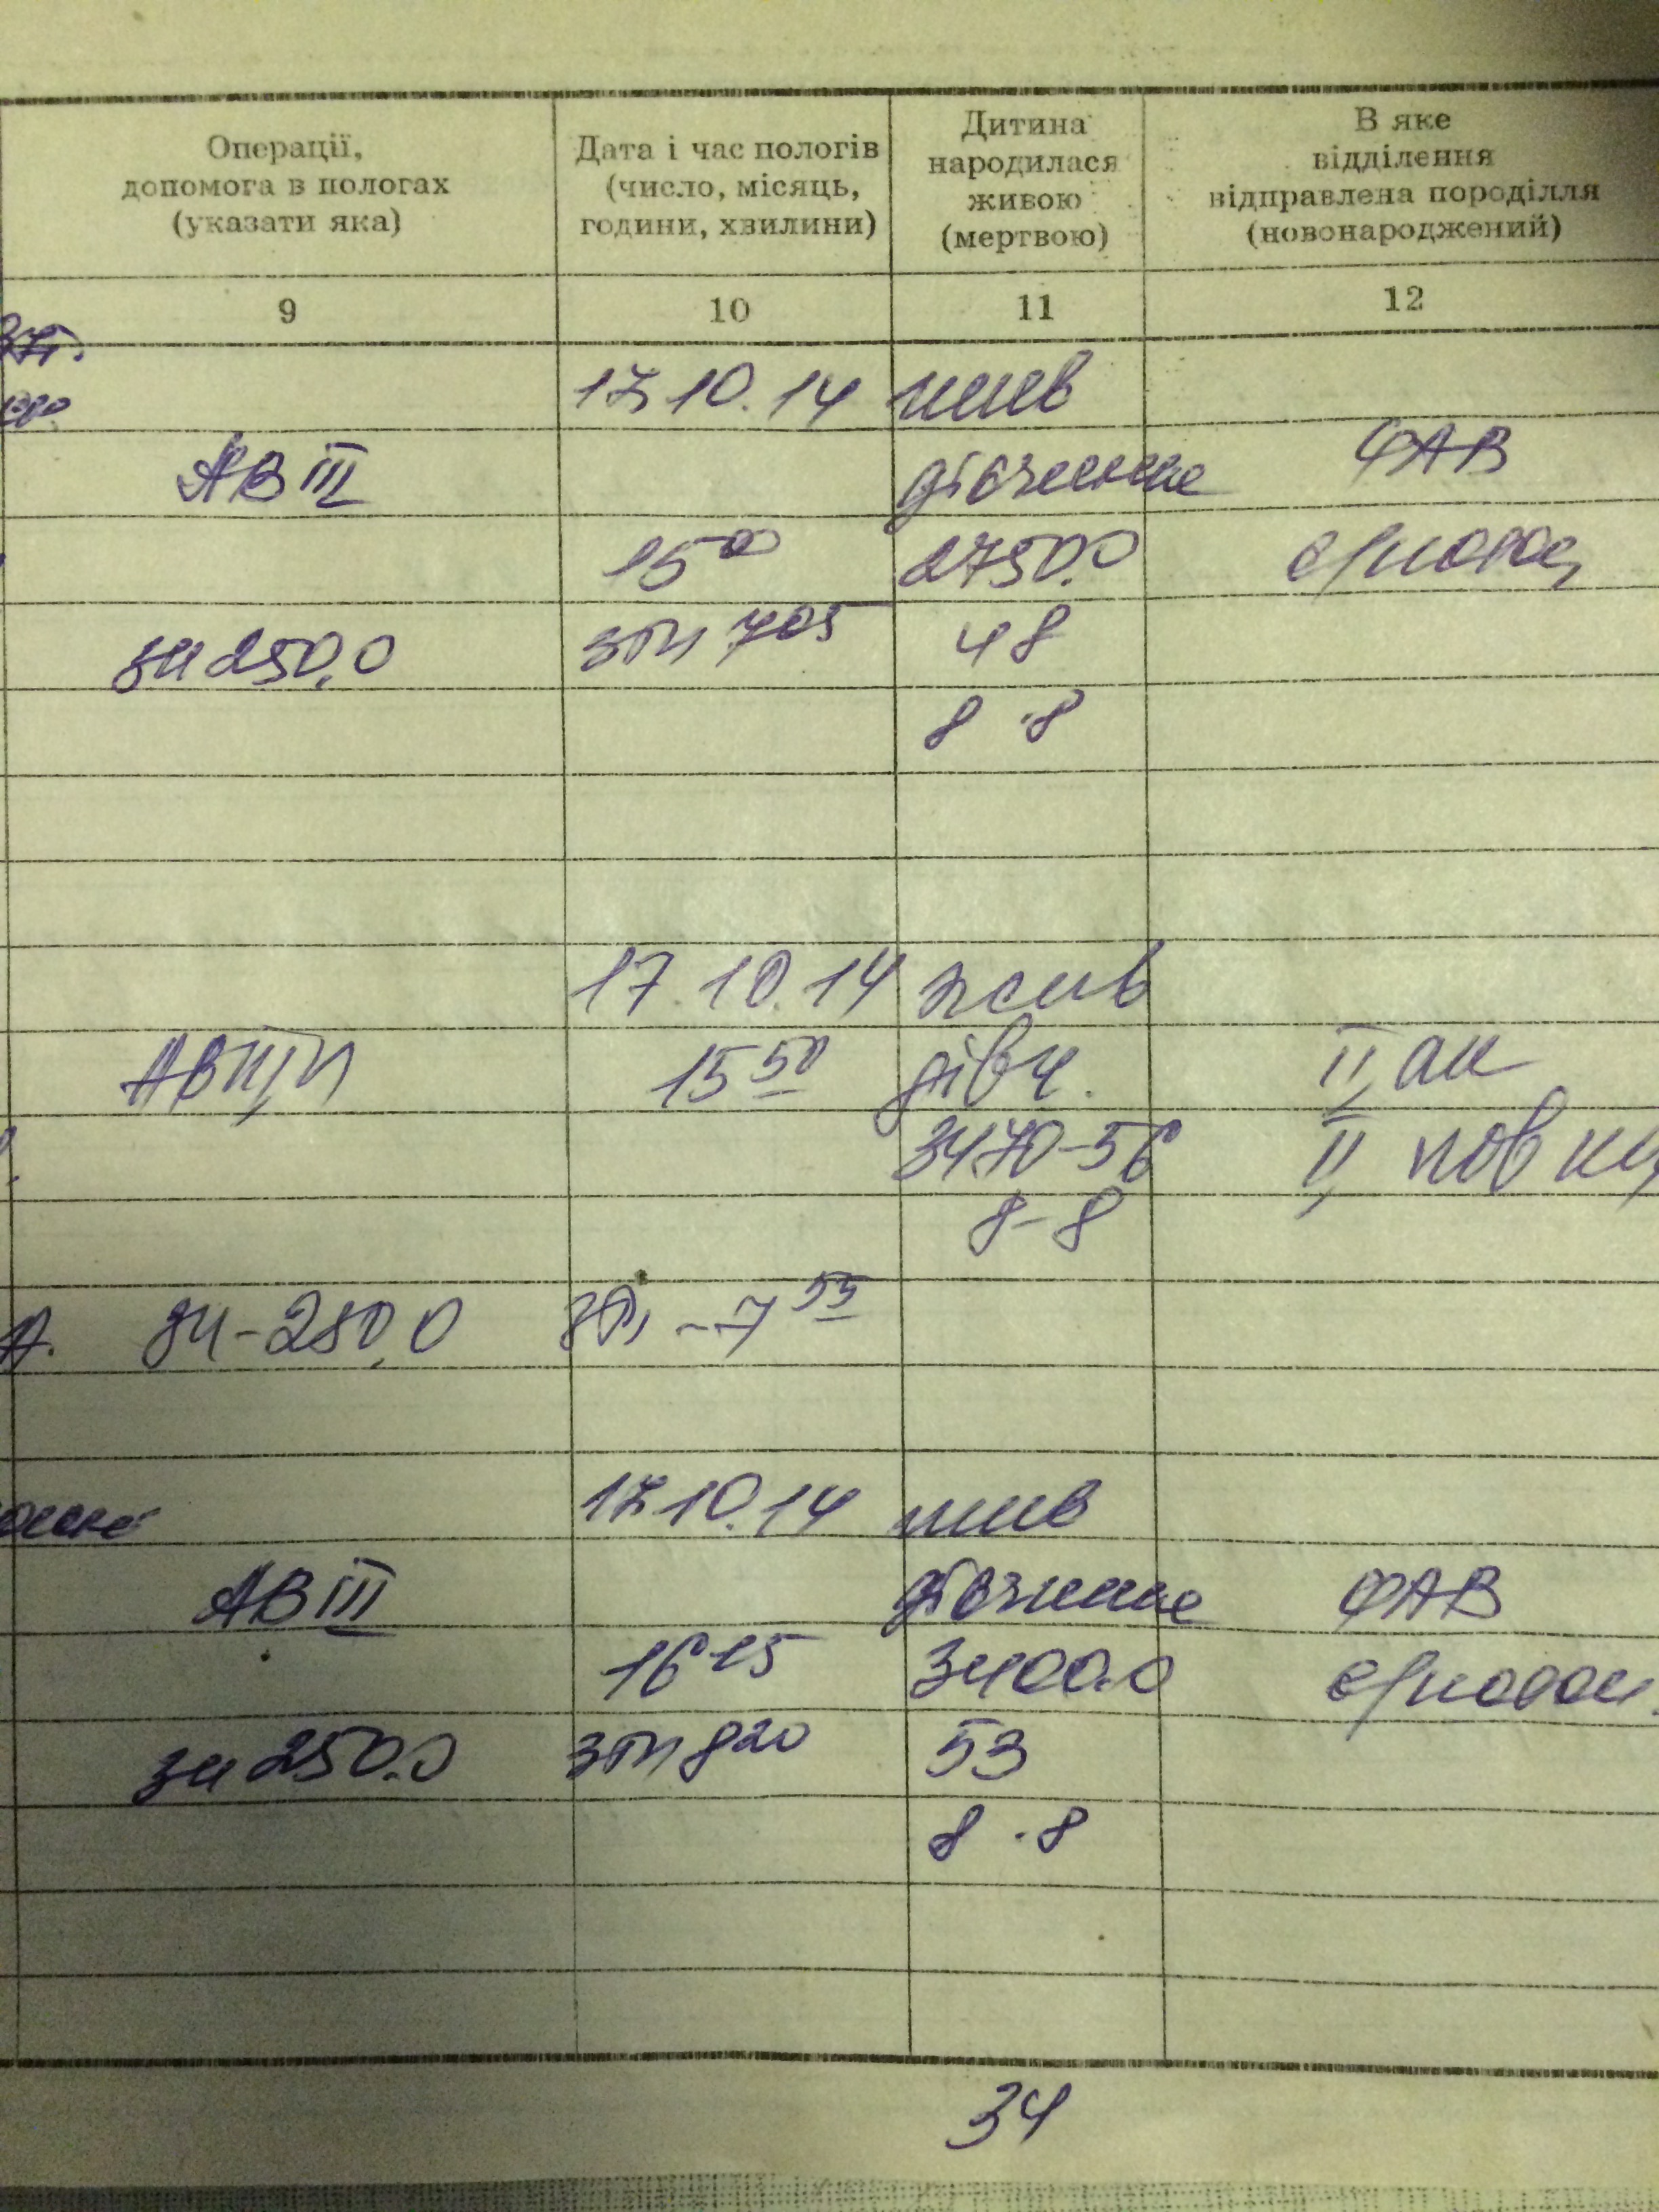 Операції,
допомога в пологах
(указати яка)
Дата і час пологів
(число, місяць,
години, хвилини)
Дитина
народилася
живою
(мертвою)
В яке
відділення
відправлена породілля
(новонароджений)
9 10 11 12
17.10.14 жив
АВ III дівчинка ФАВ
15 00 2750.0
зч 250,0 7 05 48
8 8
17.10.14 жив
АВ III 15 50 дівч. II ак
3470-56 II пов
8-8
зч-250,0 - 7 55
17.10.14 жив
АВ III дівчинка ФАВ
16 15 3400.0
зч 250.0 8 20 53
8 . 8
34